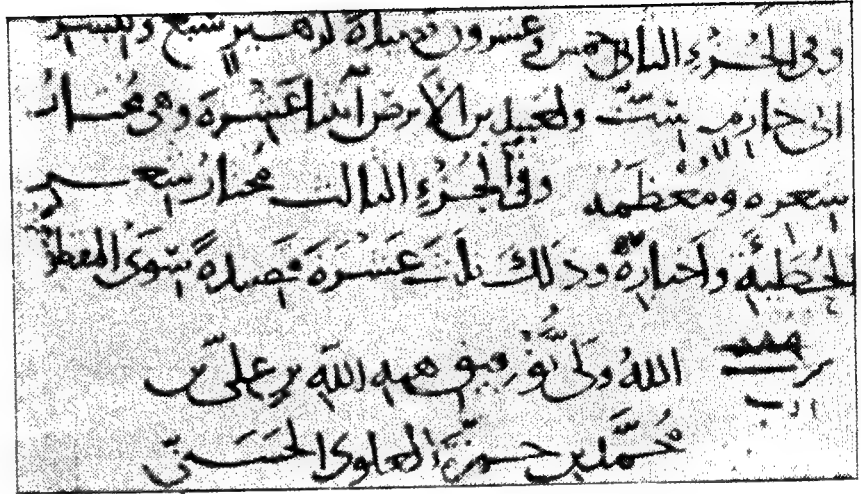 وفى الجُزءِ الثانى خمس وعشرون قصيدةً لزهير سبعٌ ولبشر
ابى خازم ستٌّ ولعبيد بن الأبرص اثنتا عَشْرةَ وهى مُختارُ
شعره ومُعْظمُه وفى الجُزءِ الثالث مُختارُ شِعر
الحُطَيئَةِ واَخبارِهِ وذلكَ ثلاثَ عَشْرَةَ قَصيدةً سِوَى المقطع
اللهُ ولىُّ توفيق هبه الله بن على بن
مُحَمَّد بن حمزَةَ العلوى الحَسَنىّ